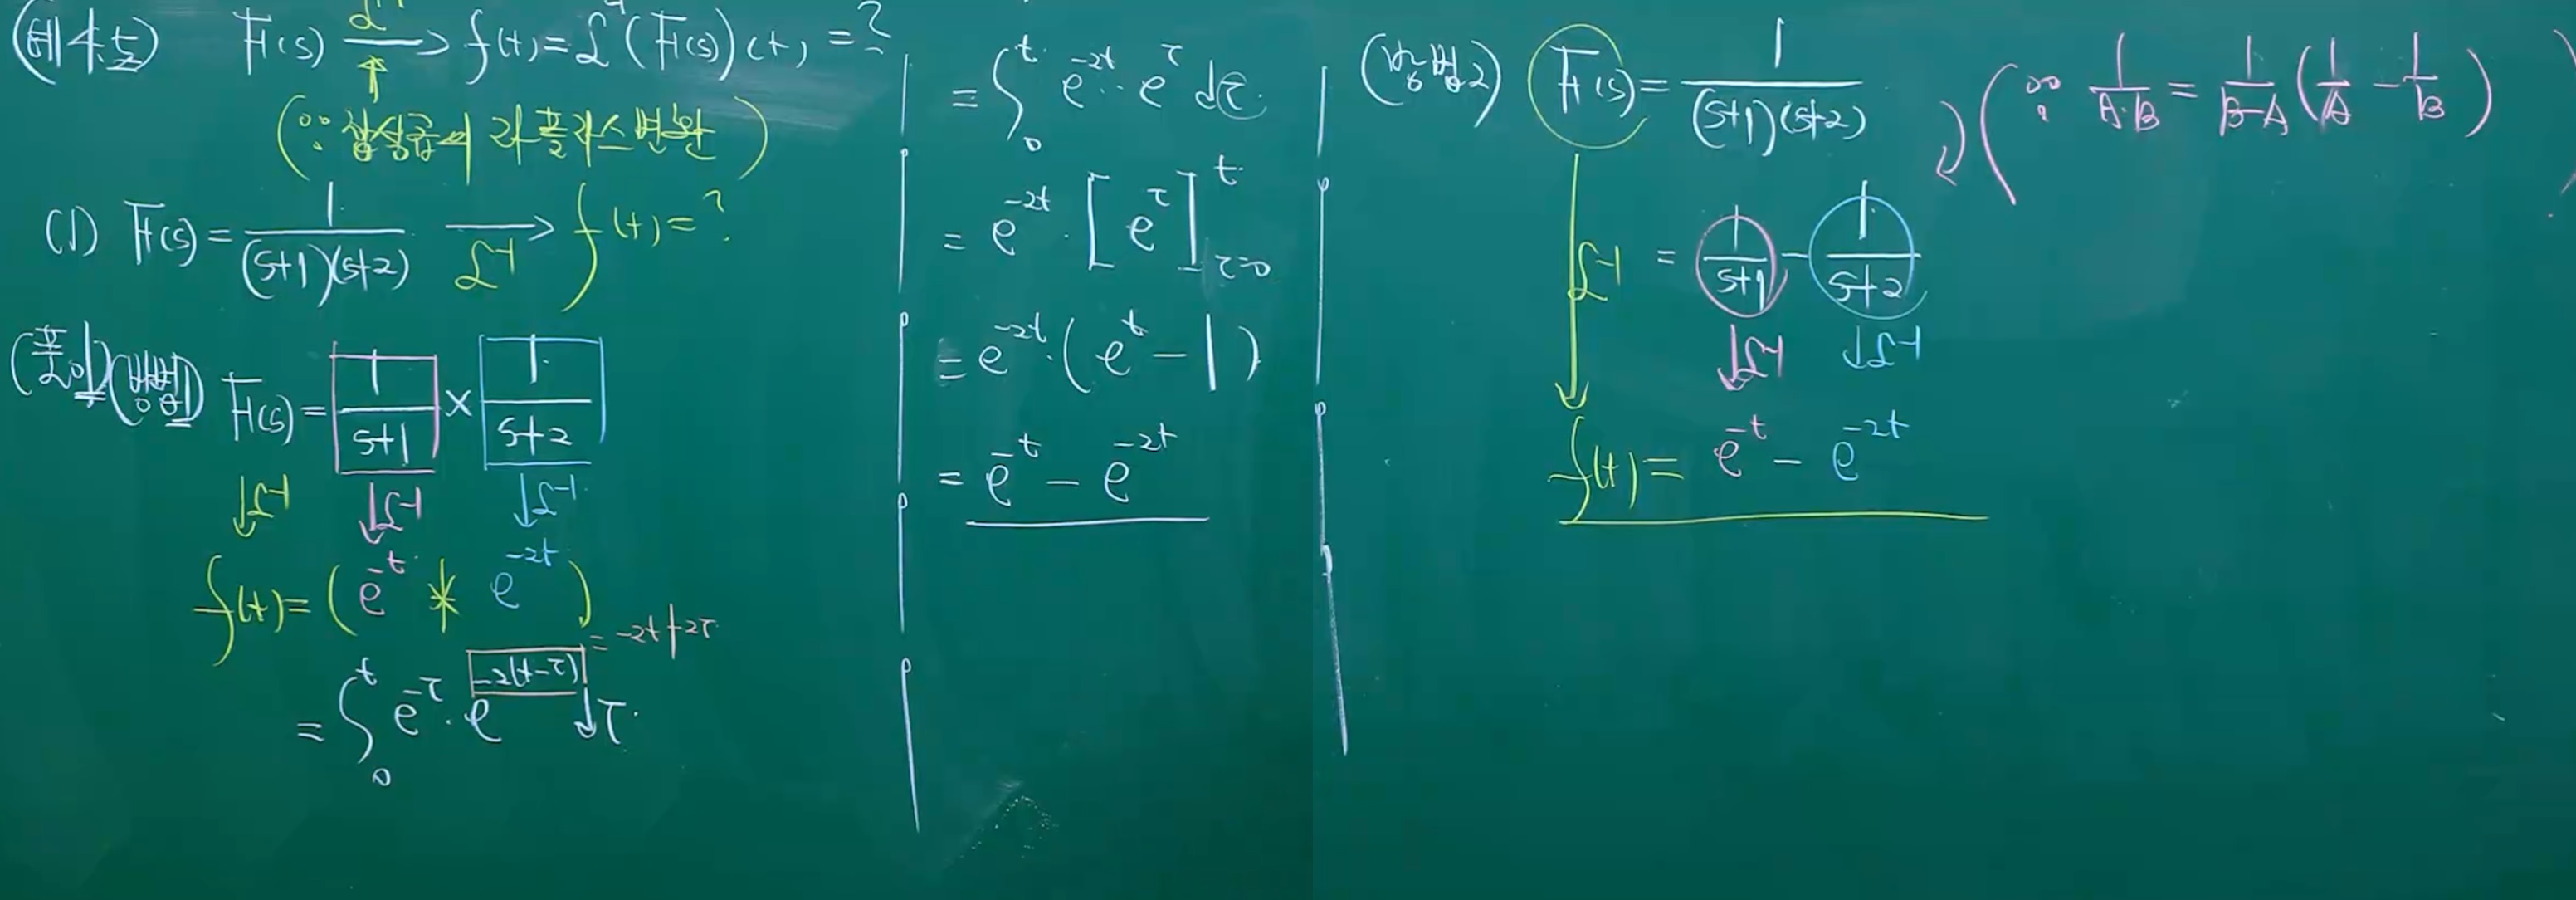 (예4.5) F(s) ℒ⁻¹→ f(t) = ℒ⁻¹(F(s))(t) = ?
(∵ 합성곱의 라플라스변환)
(1) F(s) = 1/((s+1)(s+2)) →ℒ⁻¹ f(t) = ?
(풀이)(방법1) F(s) = 1/(s+1) × 1/(s+2)
↓ℒ⁻¹ ↓ℒ⁻¹ ↓ℒ⁻¹
f(t) = (e^{-t} * e^{-2t})
= -2t+2τ
= ∫₀^t e^{-τ} · e^{-2(t-τ)} dτ
= ∫₀^t e^{-2t} · e^τ dτ
= e^{-2t} · [e^τ]_{τ=0}^t
= e^{-2t} · (e^t - 1)
= e^{-t} - e^{-2t}
(방법2) F(s) = 1/((s+1)(s+2)) (∵ 1/(A·B) = 1/(B-A) (1/A - 1/B))
ℒ⁻¹ = 1/(s+1) - 1/(s+2)
↓ℒ⁻¹ ↓ℒ⁻¹
f(t) = e^{-t} - e^{-2t}